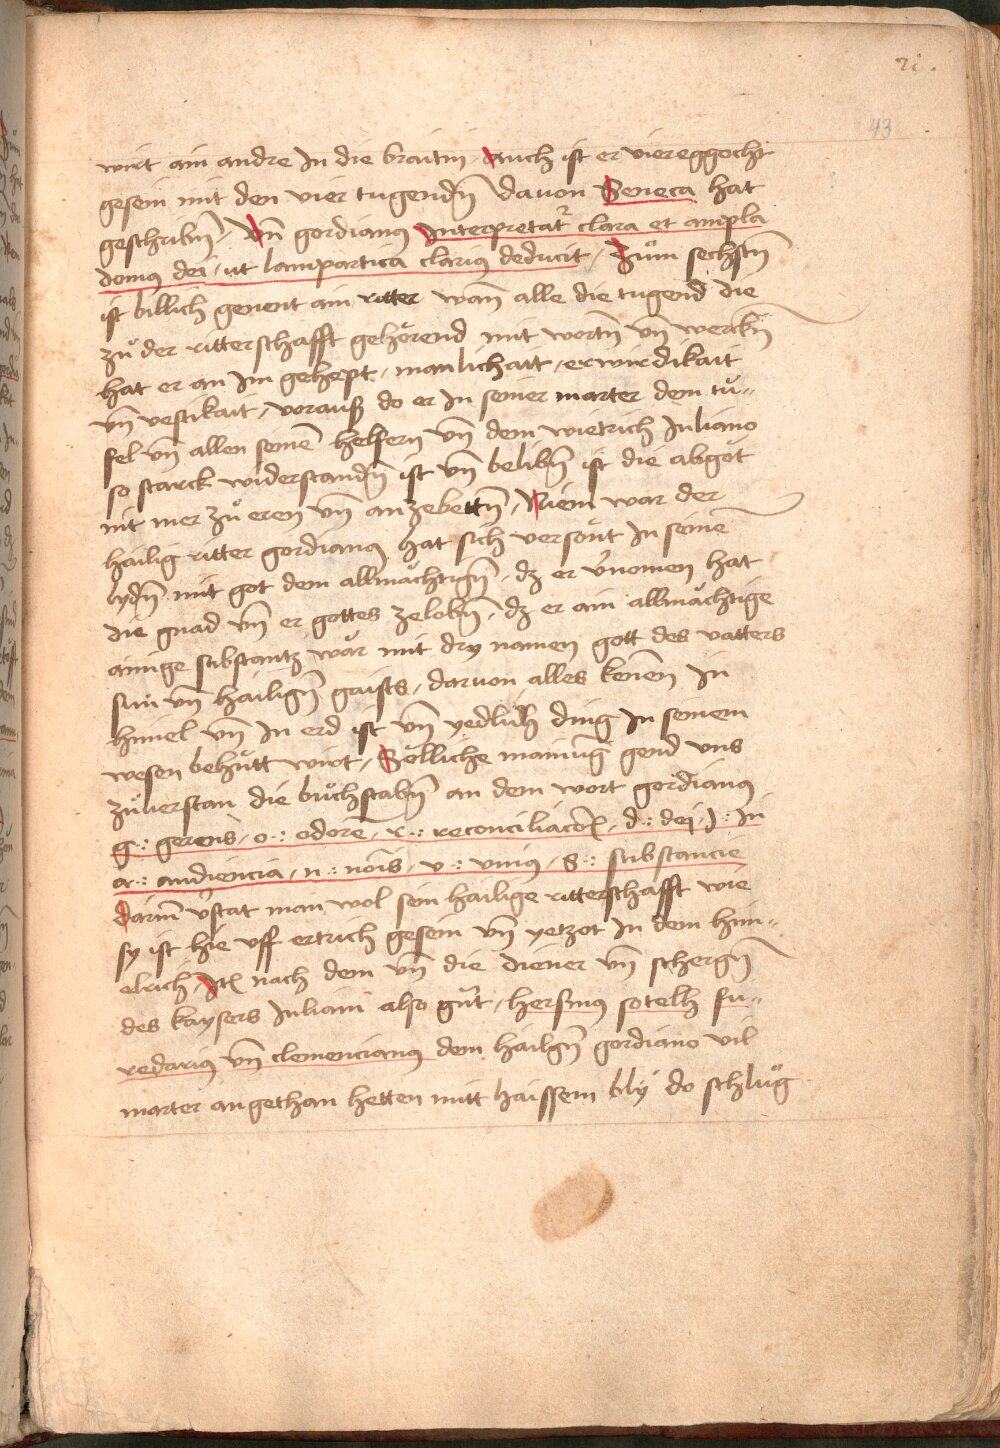 21.
43
wirt ain andre In die braitin Auch ist er viereggocht
gesein mit den vier tugendn̄ dauon Seneca hat
geschribn̄, Vn̄ gordianus Interpretatr̄ clara et ampla
domus dei, ut lampartica clarius deducit, Zům sechstn̄
ist billich genent ain ritter wan̄ alle die tugend die
zů der ritterschafft gehörend mit wortn̄ vn̄ werckn̄
hat er an Im gehept, manlichait, erwirdikait
vn̄ vestikait, vorauß do er In seiner marter dem tü„
fel vn̄ allen seinē helfern vn̄ dem wietrich Juliano
so starck widerstandn̄ ist vn̄ belibn̄ ist die abgöt
nit mer zů eren vn̄ anzebettn̄, Niem war der
hailig ritter gordianus hat sich versönt In seinē
lydn̄ mit got dem allmächtign̄, dz er v̓nomen hat
die gnad vn̄ er gottes zelobn̄, dz er ain allmächtige
ainige substantz wär mit dry namen gott des vatters
sun vn̄ hailign̄ gaists, daruon alles kenēn In
himel vn̄ In erd ist vn̄ yedlich ding In seinem
wesen behütt wirt, Sölliche mainūg gend vns
zůuerstan die bůchstabn̄ an dem wort gordianus
g.: gerens, o.: odore, r.: reconciliacōn̄, d.: dei, J.: In
a.: audiencia, n.: nōis, v.: vnius, S.: substancie
darīn v̓stat man wol sein hailige ritterschafft wie
sy ist hie vff ertrich gesein vn̄ yetzot In dem him„
elrich, Itē nach dem vn̄ die diener vn̄ schergn̄
des kaysers Juliani also gůt, hersinus sotelh fu„
redarius vn̄ clemencianus dem hailgn̄ gordiano vil
marter angethan hetten mitt haissem bly do schlůg